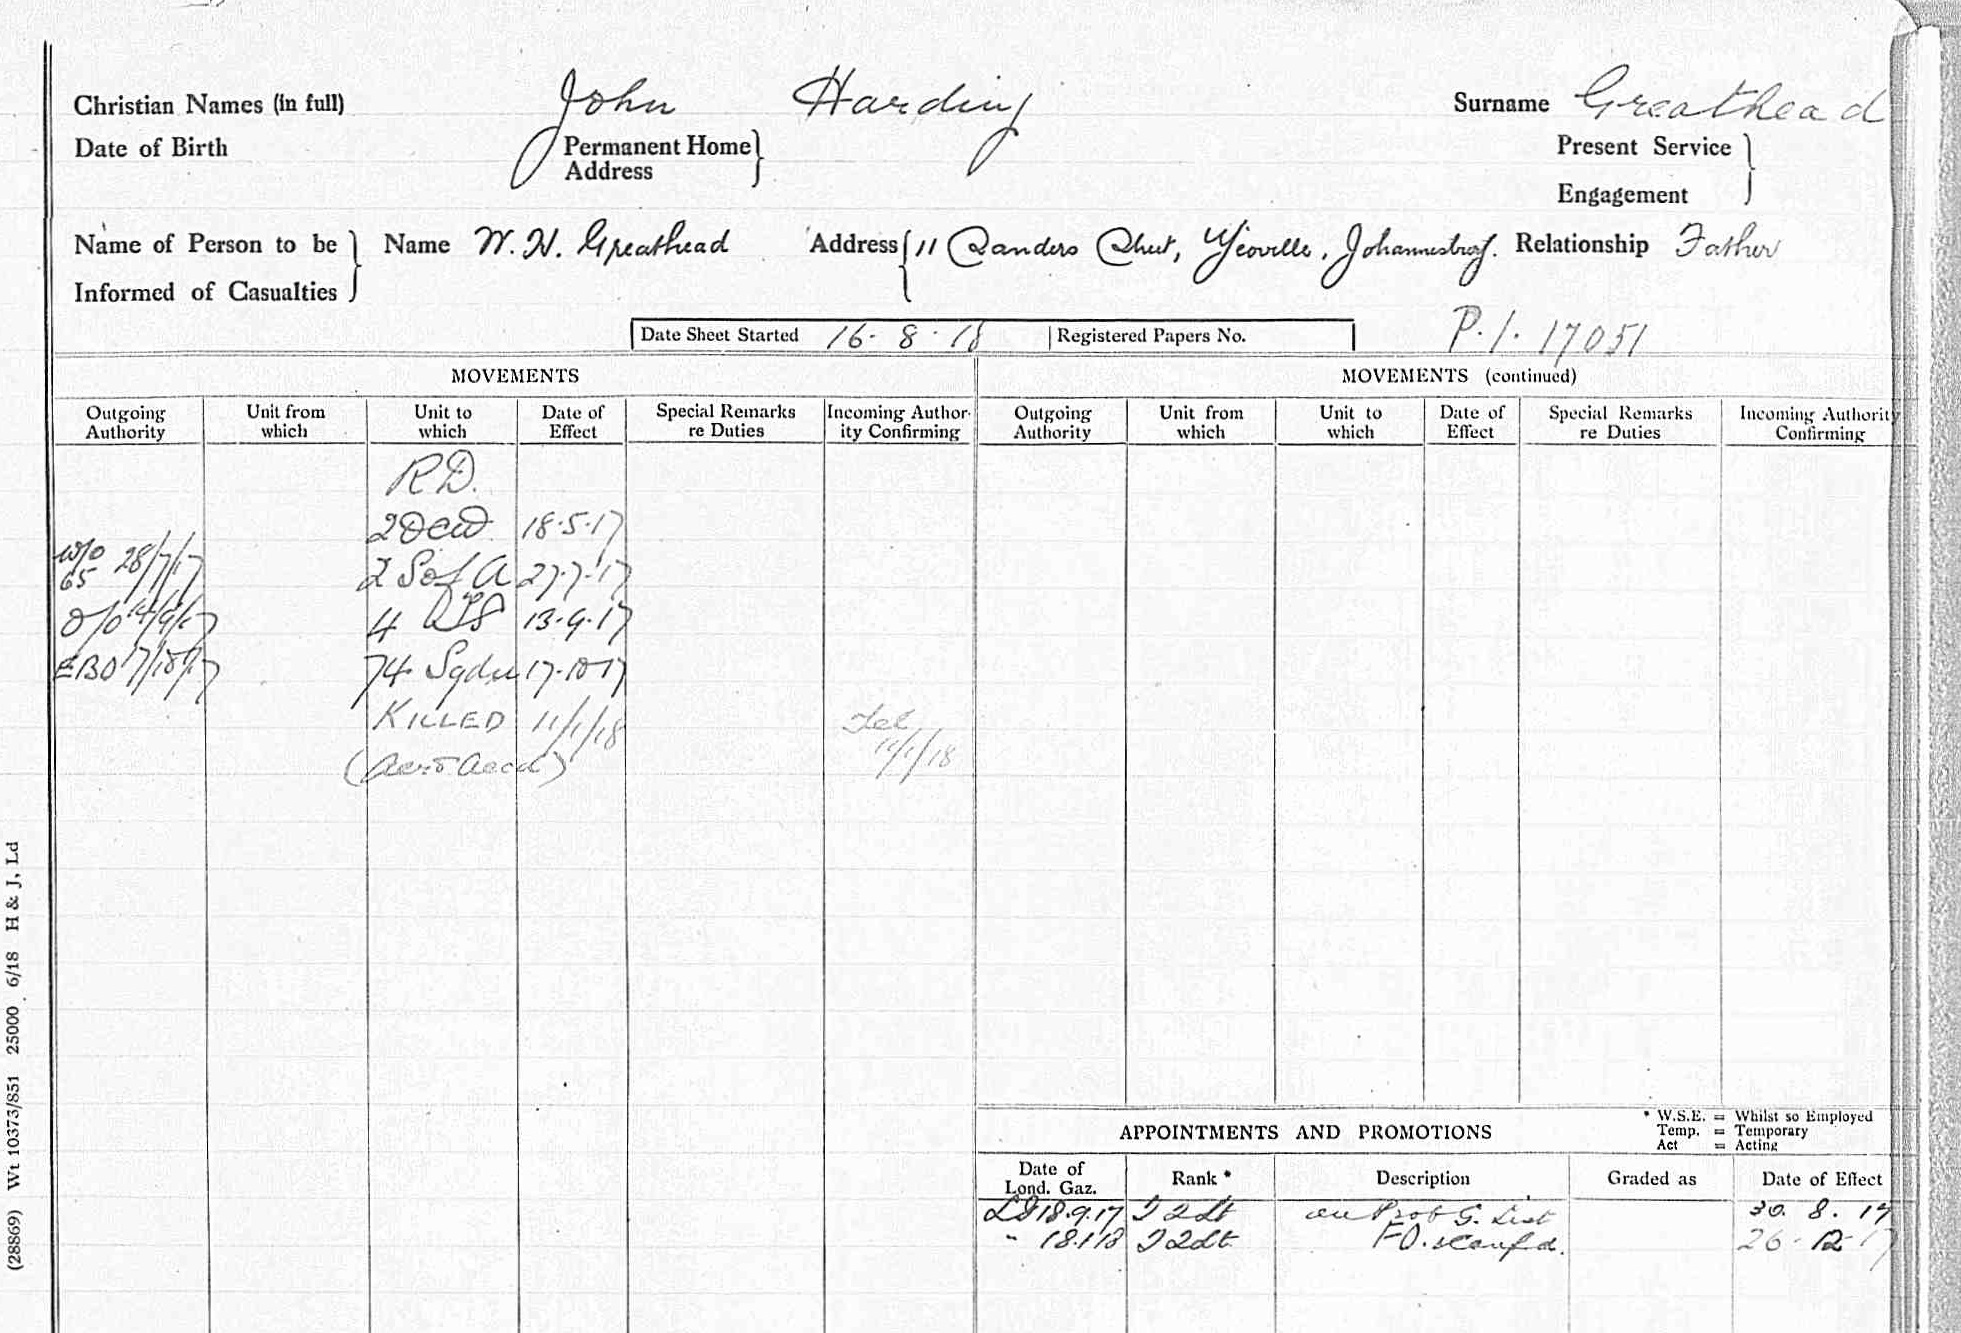 Christian Names (in full) John Harding Surname Greathead
Date of Birth Permanent Home Address Present Service
Engagement
Name of Person to be Informed of Casualties Name W. H. Greathead Address 11 Sanders Street, Yeoville, Johannesburg. Relationship Father
Date Sheet Started 16-8-18 Registered Papers No. P.1. 17051
MOVEMENTS
Outgoing Authority Unit from which Unit to which Date of Effect Special Remarks re Duties Incoming Author-ity Confirming
R.D.
18.5.17
W/O 65 28/7/17 2 S of A 27.7.17
O/O 14/9/17 4 13.9.17
EBO 17/10/17 74 Sqdn 17.10.17
KILLED 11/1/18 Tel 11/1/18
(Aero Accd)
MOVEMENTS (continued)
Outgoing Authority Unit from which Unit to which Date of Effect Special Remarks re Duties Incoming Authority Confirming
* W.S.E. = Whilst so Employed
Temp. = Temporary
Act = Acting
APPOINTMENTS AND PROMOTIONS
Date of Lond. Gaz. Rank * Description Graded as Date of Effect
LG 18.9.17 T 2Lt on Prob G. List 30. 8. 17
" 18.1.18 T 2Lt. FO. & confd. 26-12-17
(28869) Wt 10373/851 25000 6/18 H & J, Ld